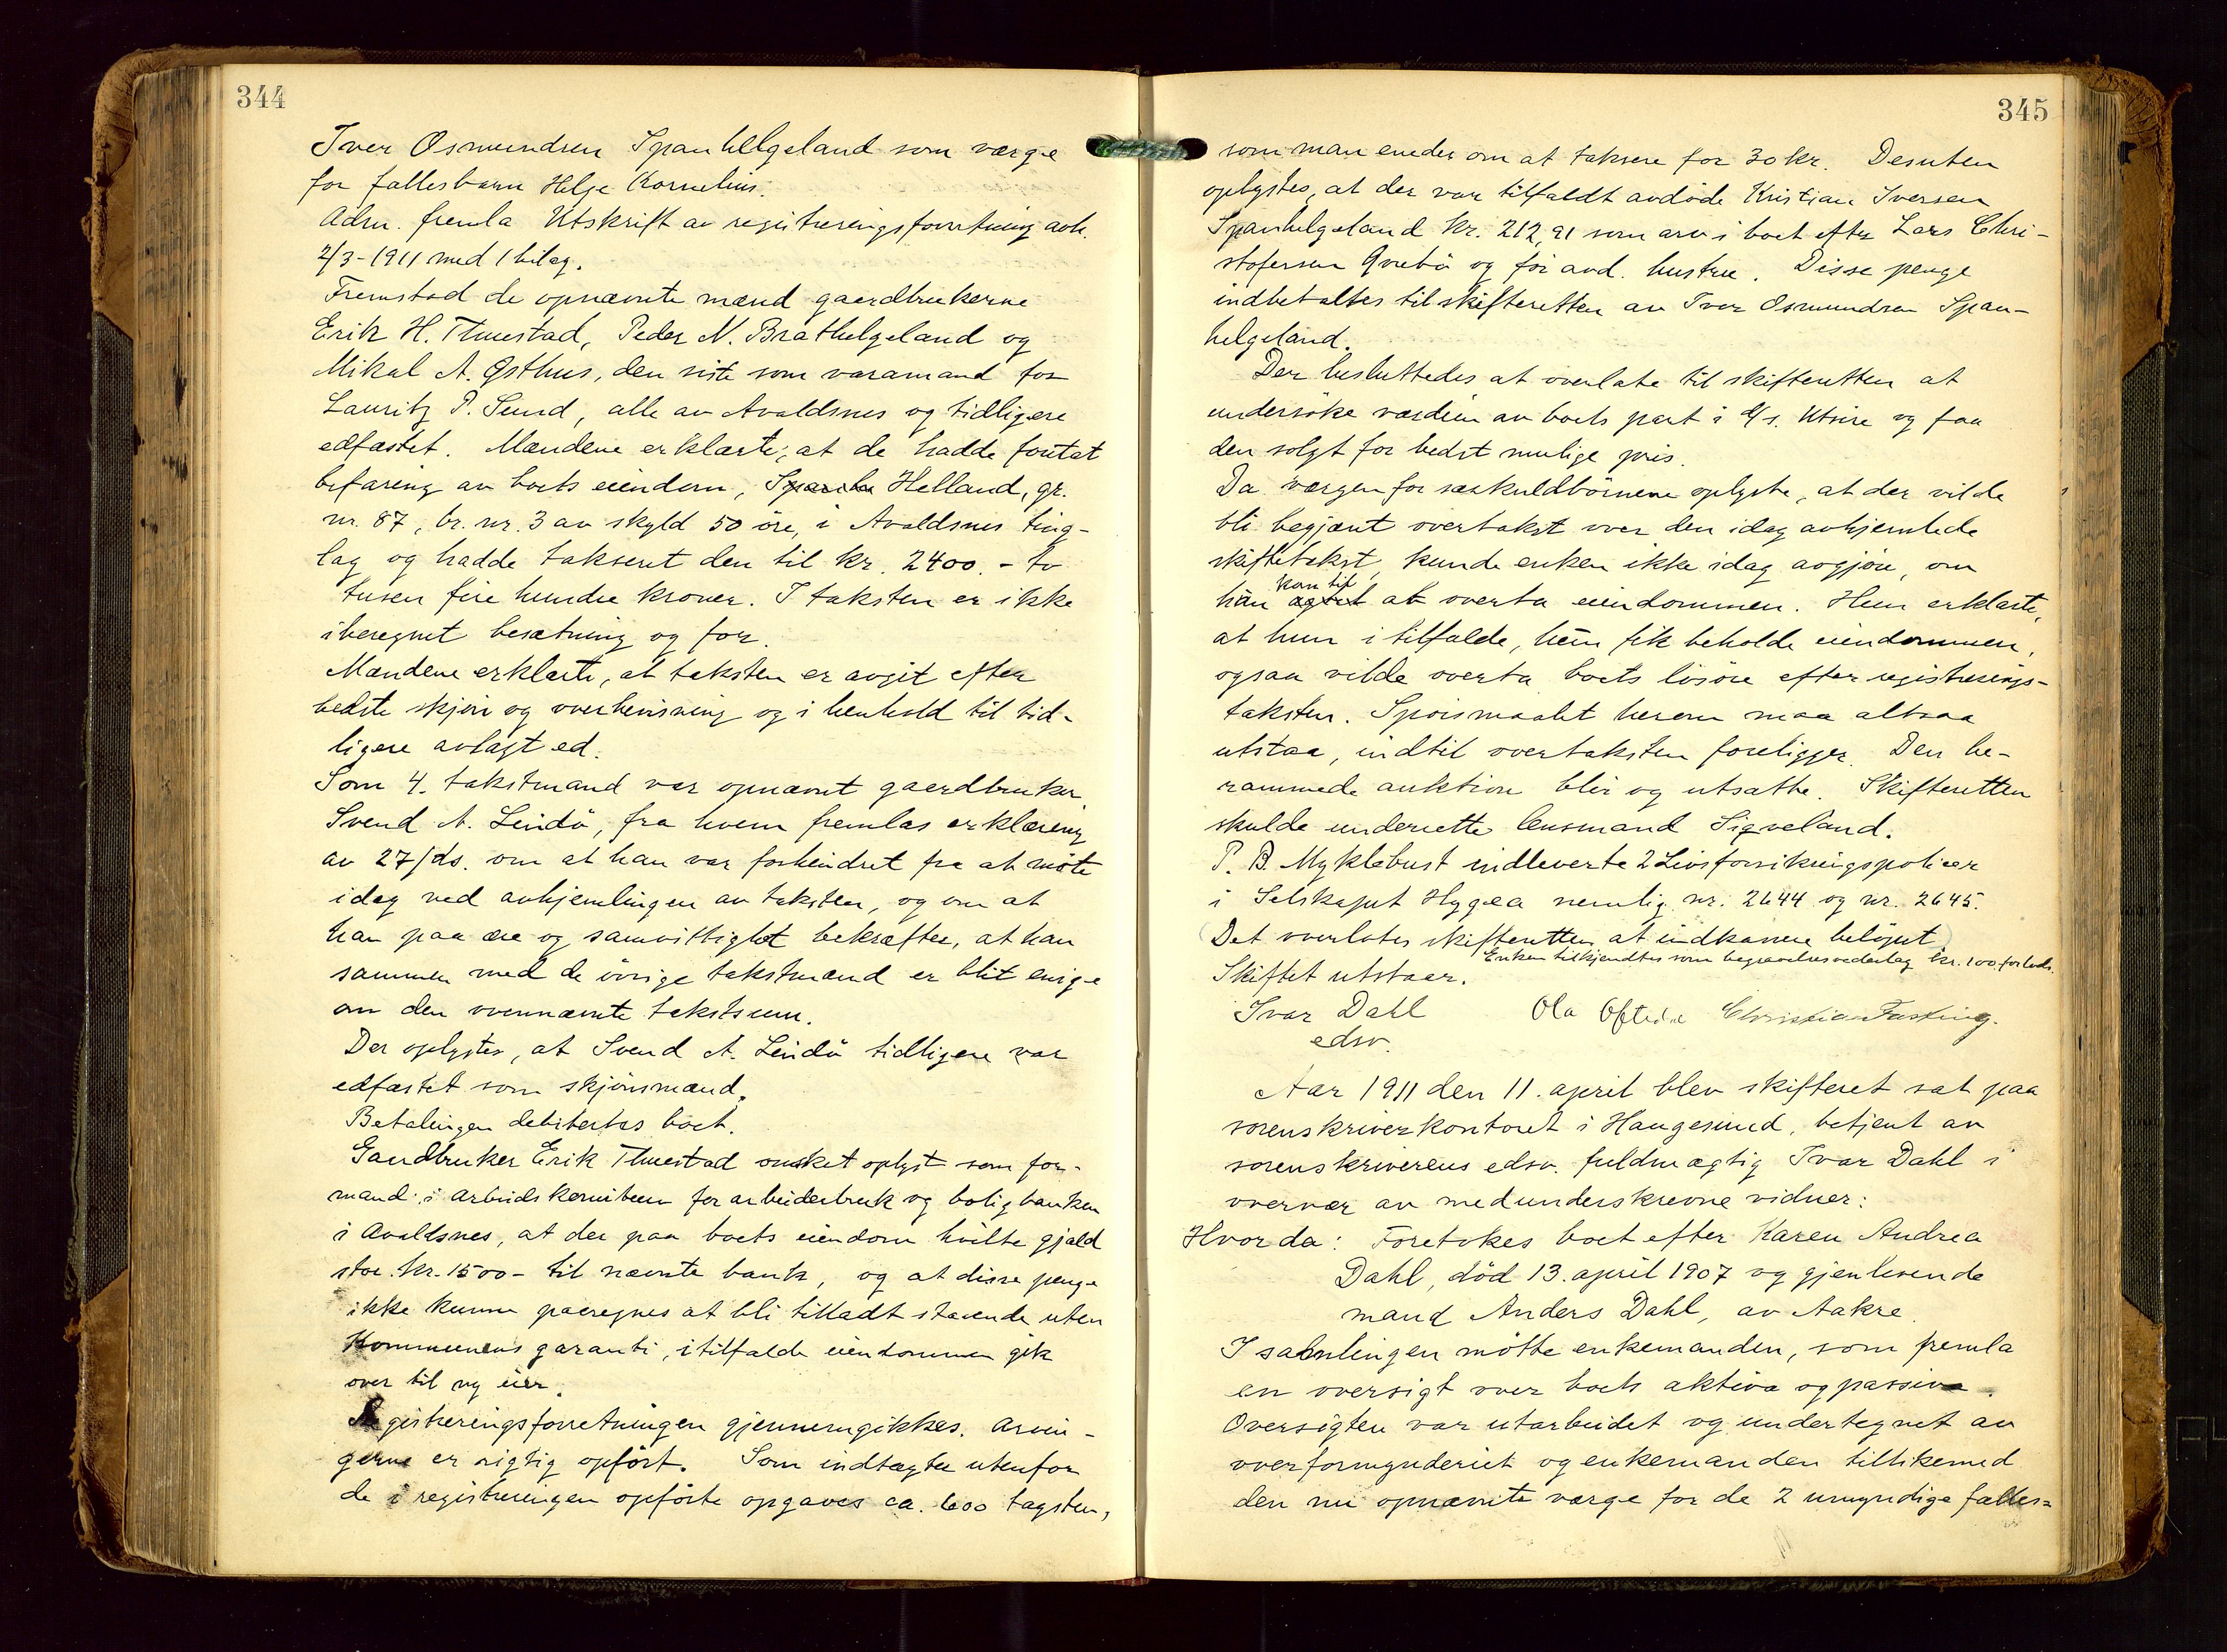 344
Iver Osmundsen Spanhelgeland som værge
for fællesbarn Helge Kornelius.
Adm. fremla Utskrift av registreringsforretning avh.
2/3-1911 med 1 bilag.
Fremstod de opnævnte mænd gaardbrukerne
Erik H. Thuestad, Peder N. Brathelgeland og
Mikal A. Østhus, den siste som varamand for
Lauritz P. Sund, alle av Avaldsnes og tidligere
edfæstet. Mændene erklærte, at de hadde foretat
befaring av boets eiendom, Helland, gr.
nr. 87, br. nr. 3 av skyld 50 öre, i Avaldsnes ting-
lag og hadde takseret den til kr. 2400.- to
tusen fire hundre kroner. I taksten er ikke
iberegnet besætning og for.
Mændene erklærte, at taksten er avgit efter
bedste skjön og overbevisning og i henhold til tid-
ligere avlagt ed.
Som 4. takstmand var opnævnt gaardbruker
Svend A. Leindö, fra hvem fremlas erklæring
av 27/ds. om at han var forhindret fra at möte
idag ved avhjemlingen av taksten, og om at
han paa ære og samvittighet bekræfter, at han
sammen med de övrige takstmænd er blit enige
om den ovennævnte takstsum.
Der oplystes, at Svend A. Leindö tidligere var
edfæstet som skjönsmand.
Betalingen debitertes boet.
Gardbruker Erik Thuestad önsket oplyst som for-
mand i arbeidskomiteen for arbeiderbruk og boligbanken
i Avaldsnes, at der paa boets eiendom hvilte gjæld
stor kr. 1500- til nævnte bank, og at disse penge
ikke kunne paaregnes at bli tilladt staaende uten
Kommunens garanti, i tilfælde eiendommen gik
over til ny eier.
Registreringsforretningen gjennemgikkes. Arvin-
gerne er rigtig opfört. Som indtægter utenfor
de i registreringen opförte opgaves ca. 600 tagsten,
345
som man enedes om at taksere for 30 kr. Desuten
oplystes, at der var tilfaldt avdöde Kristian Iversen
Spanhelgeland kr. 212,91 som arv i boet efter Lars Chri-
stofersen Qvebö og för avd. hustru. Disse penge
indbetaltes til skifteretten av Iver Osmundsen Span-
helgeland.
Der besluttedes at overlate til skifteretten at
undersöke værdien av boets part i d/s. Utsire og faa
den solgt for bedst mulige pris.
Da værgen for særkuldbörnene oplyste, at der vilde
bli begjært overtakst over den idag avhjemlede
skiftetakst, kunde enken ikke idag avgjöre, om
kom til
hun agtet at overta eiendommen. Hun erklærte,
at hun i tilfælde, hun fik beholde eiendommen,
ogsaa vilde overta boets lösöre efter registrerings-
taksten. Spörsmaalet herom maa altsaa
utstaa, indtil overtaksten foreligger. Den be-
rammede auktion blir og utsatte. Skifteretten
skulde underrette lensmand Siqveland.
P. B. Myklebust indleverte 2 Livsforsikringspoliser
i Selskapet Hygæa nemlig nr. 2644 og nr. 2645.
(Det overlates skifteretten at indkassere belöpet)
Enken tilkjendtes som begravelsesvederlag kr. 100 forlods.
Skiftet utstaar.
Ivar Dahl Ola Oftedal Christian Fasting.
edsv.
Aar 1911 den 11. april blev skifteret sat paa
sorenskriverkontoret i Haugesund, betjent av
sorenskriverens edsv. fuldmægtig Ivar Dahl i
overvær av medunderskrevne vidner:
Hvor da: Foretokes boet efter Karen Andrea
Dahl, död 13. april 1907 og gjenlevende
mand Anders Dahl, av Aakre.
I samlingen mötte enkemanden, som fremla
en oversigt over boets aktiva og passiva.
Oversigten var utarbeidet og undertegnet av
overformynderiet og enkemanden tillikemed
den nu opnævnte værge for de 2 umyndige fælles=